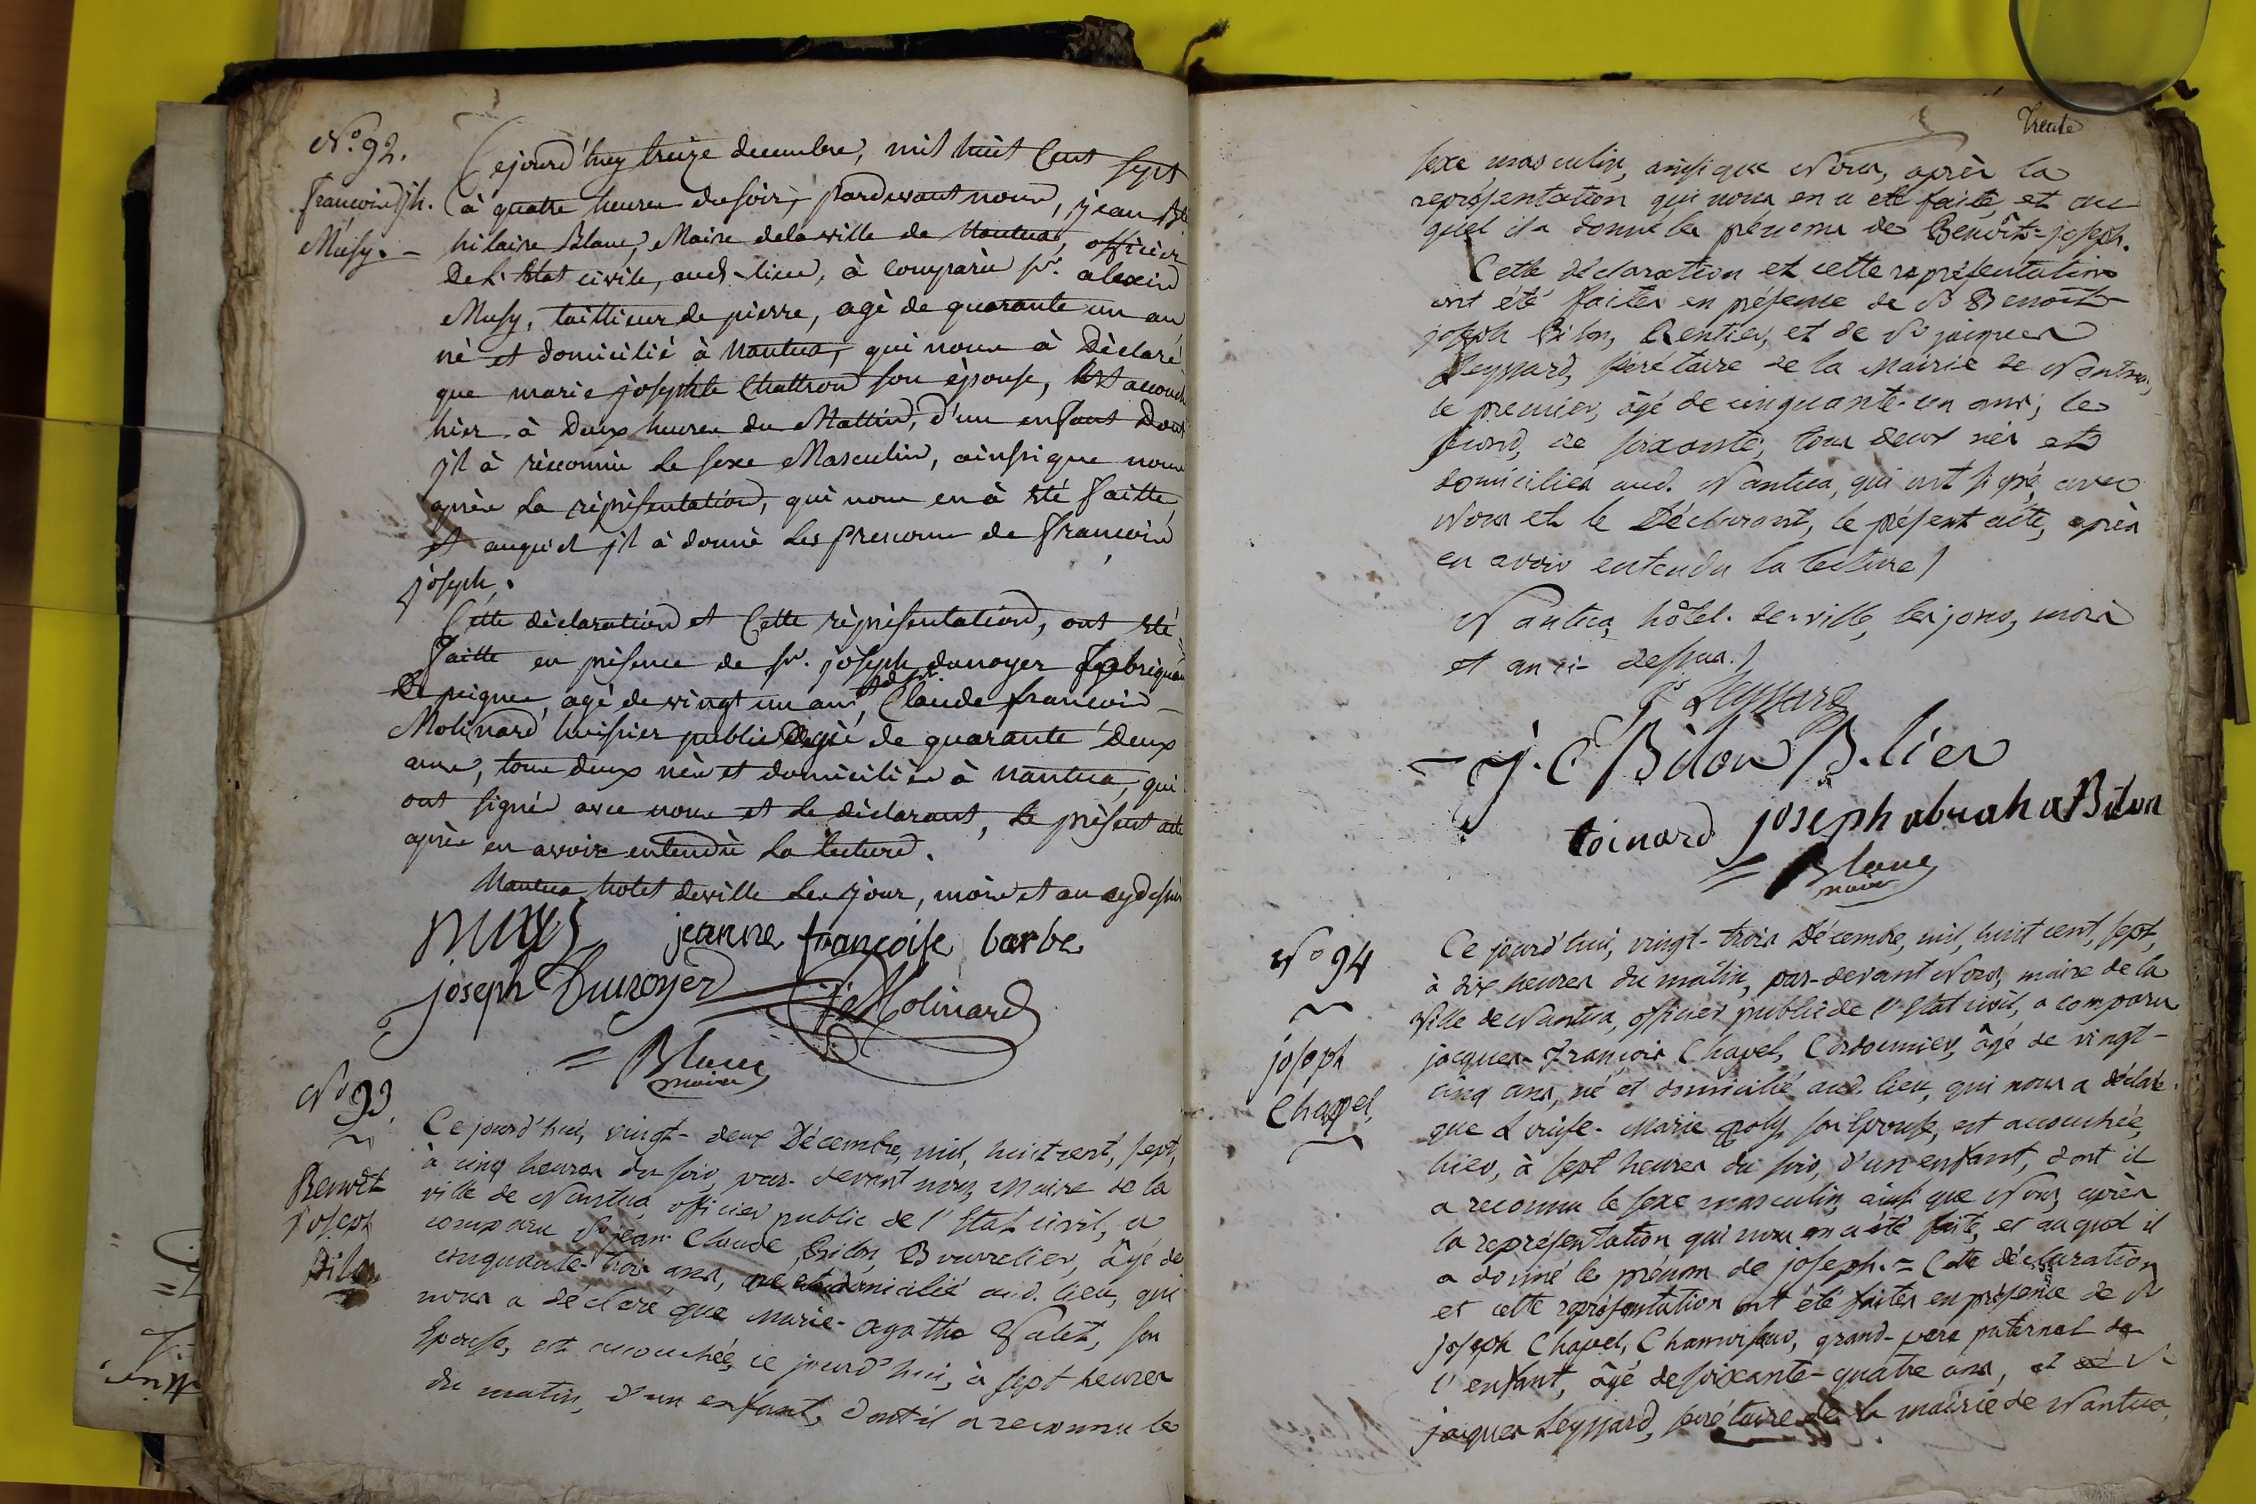 N.o 92.
francois jh.
Musy. -
Cejourd'huy treize decembre, mil huit Cent sept
à quatre heures du soir, pardevant nous, jean Bte
hilaire Blanc, Maire de la ville de Nantua, officier
de l'Etat civile, aud. lieu, à comparu sr. alexis
Musy, taillieur de pierre, agé de quarante un an
né et domicilié à Nantua, qui nous à Déclaré
que marie josephte Chattron son épouse, Est accouch
hier à Deux heures du Mattin, d'un enfant Dont
jl à réconnu le sexe Masculin, ainsi que nous
après la réprésentation, qui nous en à été faitte,
et auquel jl à donné les prenoms de François
joseph.
Cette déclaration et Cette réprésentation, ont été
faitte en présence de sr. joseph dunoyer fabriquan
De peignes, agé de vingt un ans, et de sr. Claude francois
Molinard huissier public Agé de quarante Deux
ans, tous deux nés et domiciliés à Nantua, qui
ont signés avec nous et le déclarant, le présent acte
après en avoir entendu la lecture.
Nantua hotel deville les jour, mois et an cydessus
Musy jeanne françoise barbe
joseph Dunoyer Molinard
= Blanc
maire
N.o 93.
Benoît
Joseph
Bilon
Ce jourd'hui, vingt-deux Décembre, mil, huit cent, sept,
à cinq heures du soir, par-devant nous, Maire de la
ville de Nantua officier public de l'Etat civil, a
comparu Sr jean-Claude Bilon, Bourrelier, âgé de
cinquante-trois ans, né et domicilié aud. lieu, qui
nous a déclaré que Marie-Agathe Valet, son
Epouse, est accouchée, ce jourd'hui, à sept heures
du matin, d'un enfant, dont il a reconnu le
Trente
sexe masculin, ainsi que Nous, après la
représentation qui nous en a été faite, et au
quel il a donné les prénoms de Benoît-joseph.
Cette déclaration et cette représentation
ont été faites en présence de Sr Benoît-
joseph Bilon, Rentier, et de Sr jacques
Leyssard, secrétaire de la Mairie de Nantua,
le premier, âgé de cinquante-un ans; le
second, de soixante; tous deux nés et
domiciliés aud. Nantua, qui ont signé, avec
Nous et le Déclarant, le présent acte, après
en avoir entendu la lecture /
Nantua, hôtel-de-ville, les jour, mois
et an ci-dessus. /
Leyssard
J. C Bilon B.lier
toinard joseph abraha Bilon
= Blanc
maire
N.o 94
joseph
Chapel,
Ce jourd'hui, vingt-trois Décembre, mil, huit cent, sept,
à dix heures du matin, par-devant Nous, maire de la
Ville de Nantua, officier public de l'Etat civil, a comparu
jacques-françois Chapel, Cordonnier, âgé de vingt-
cinq ans, né et domicilié aud. lieu, qui nous a déclaré
que Louise-Marie Poly, son Epouse, est accouchée,
hier, à sept heures du soir, d'un enfant, dont il
a reconnu le sexe masculin, ainsi que Nous, après
la représentation qui nous en a été faite, et auquel il
a donné le prénom de joseph. = Cette déclaration
et cette représentation ont été faites en présence de Sr
joseph Chapel, Chamoiseur, grand-père paternel de
l'enfant, âgé de soixante-quatre ans, et de Sr
jacques Leyssard, secrétaire de la mairie de Nantua,